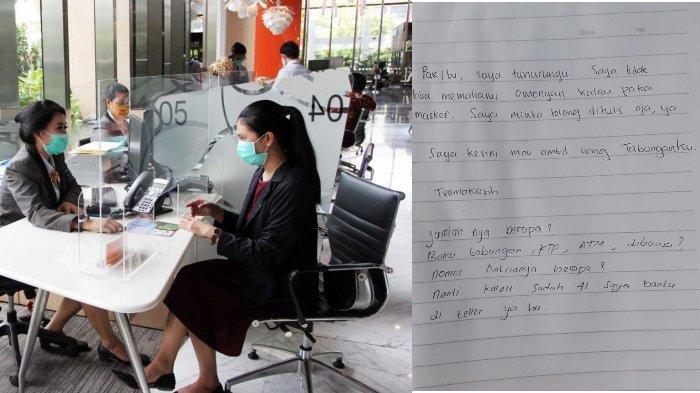 05
04
Date
No
Pak/bu, saya tunarungu. Saya tidak
bisa memahami omongan kalau pakai
masker. Saya minta tolong ditulis aja, ya.
Saya kesini mau ambil uang Tabunganku.
Terimakasih
Jumlah nya berapa?
Buku tabungan, KTP, ATM, dibawa?
Nomer Antriannya berapa?
Nanti kalau sudah 41 saya bantu
di teller ya bu.